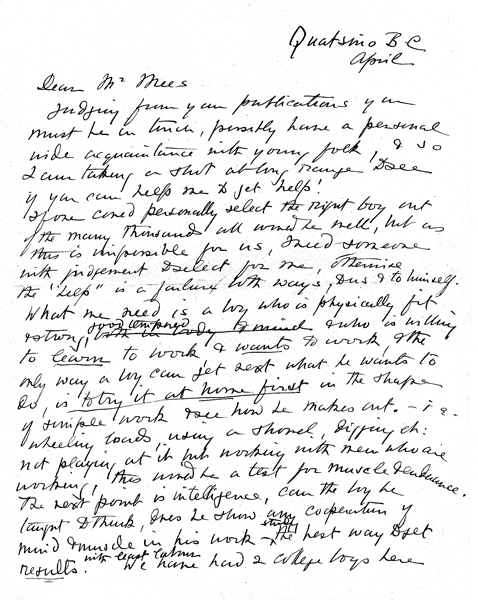 Quatsino B C
April
Dear Mr Mees
Judging from your publications you
must be in touch, possibly have a personal
wide acquaintance with young folk, & so
I am taking a shot at long range & see
if you can help me to get help!
If one could personally select the right boy out
of the many thousands all would be well, but as
this is impossible for us, I need someone
with judgement to select for me, otherwise
the "help" is a failure both ways, to us & to himself.
What we need is a boy who is physically fit
& strong, good tempered with it body & mind & who is willing
to learn to work, & wants to work, & the
only way a boy can get next what he wants to
do, is to try it at home first in the shape
of simple work & see how he makes out. – i.e.
wheeling loads, using a shovel, digging ch:
not playing at it but working with men who are
working, this would be a test for muscle & endurance.
The next point is intelligence, can the boy be
taught to think, does he show any cooperation of
mind & muscle in his work – study the best way to get
results. with least labour We have had 2 college boys here